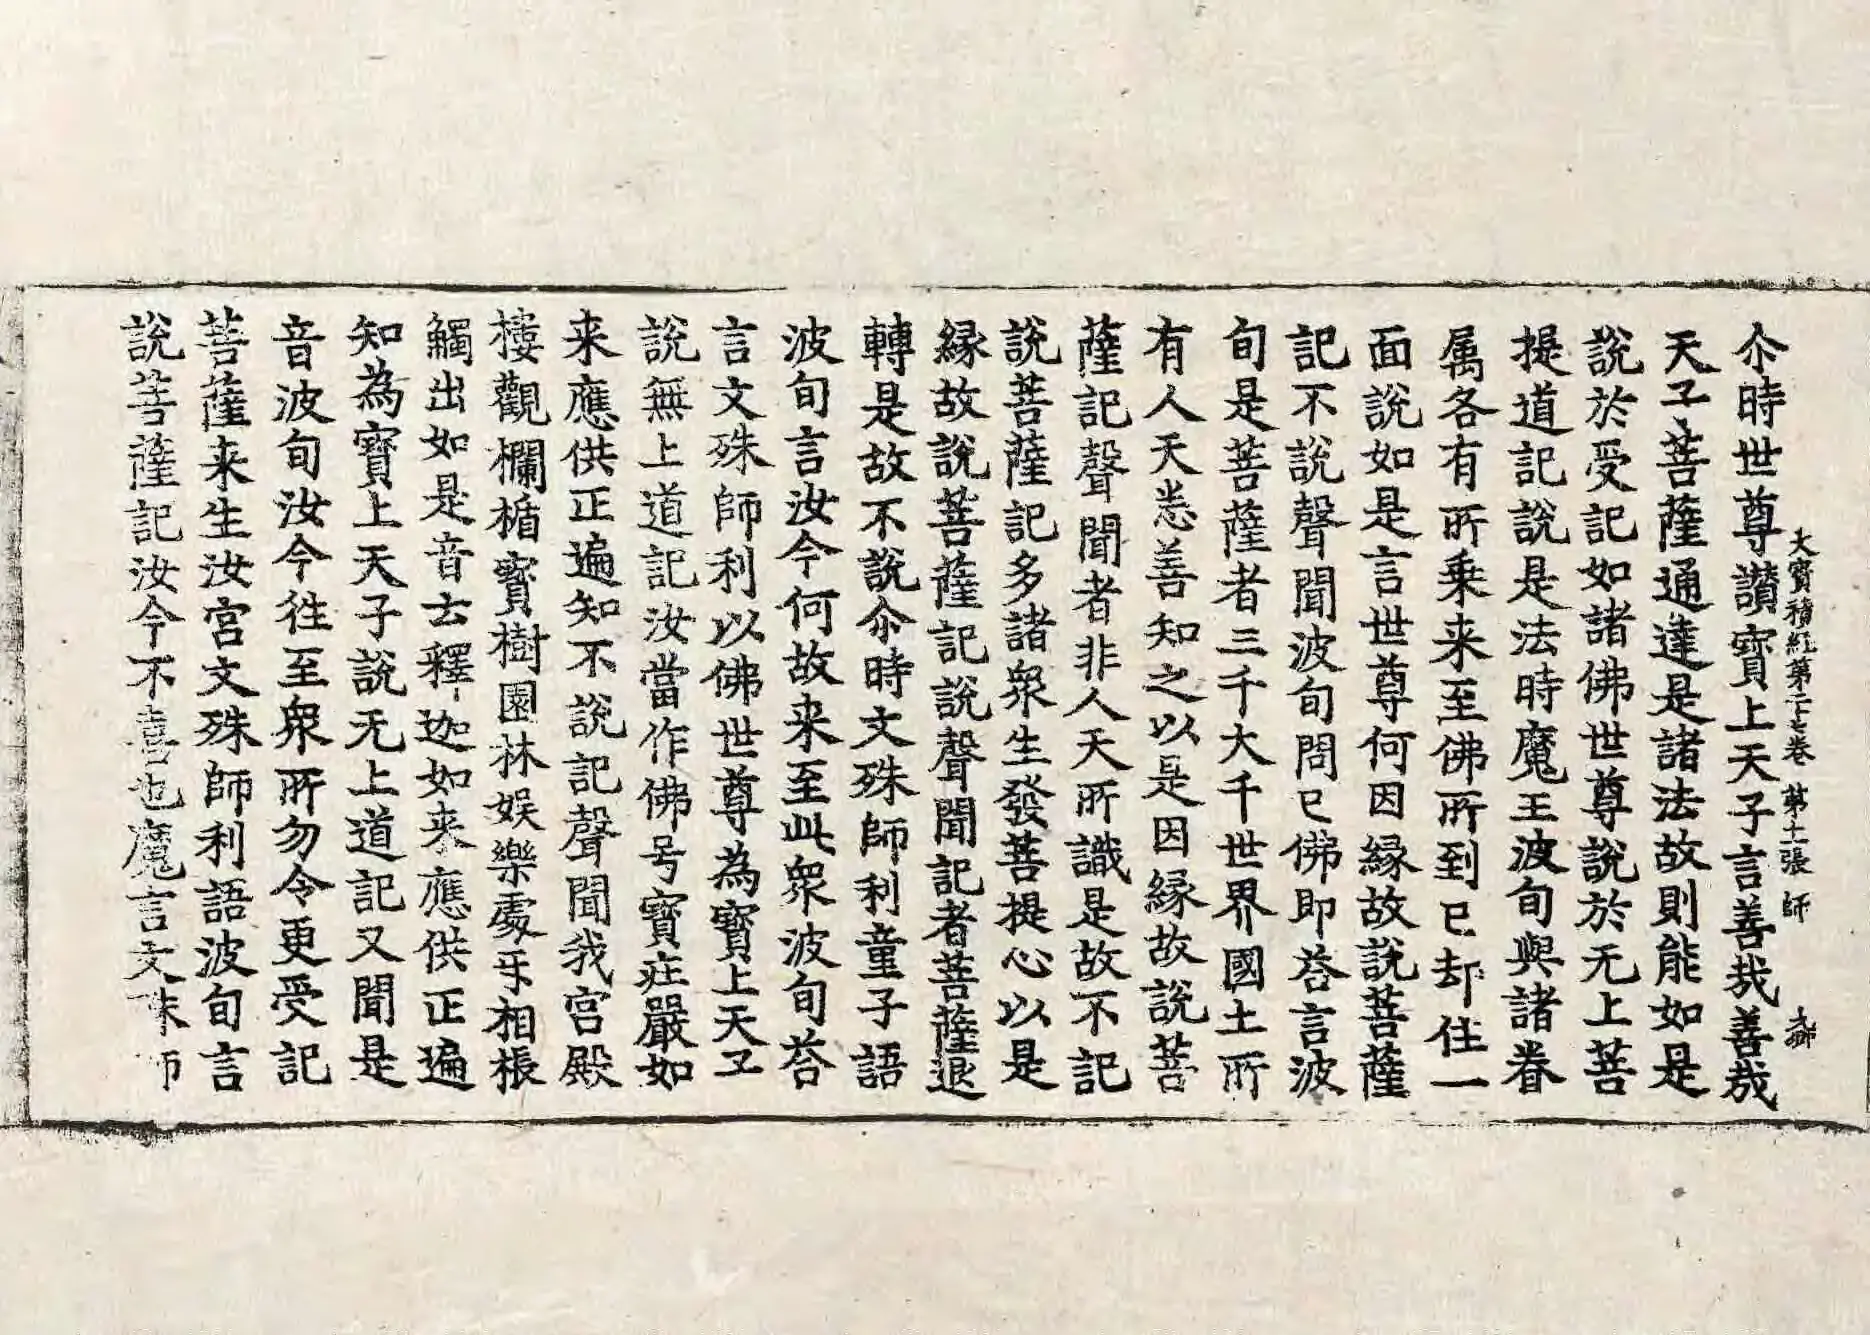 大寶積經第二十七卷 第十二張 師
尒時世尊讃寶上天子言善哉善哉
天子菩薩通達是諸法故則能如是
說於受記如諸佛世尊說於无上菩
提道記說是法時魔王波旬與諸眷
属各有所乗来至佛所到已却住一
面說如是言世尊何因縁故說菩薩
記不說聲聞波旬問已佛即荅言波
旬是菩薩者三千大千世界國土所
有人天悉善知之以是因縁故說菩
薩記聲聞者非人天所識是故不記
說菩薩記多諸衆生發菩提心以是
縁故說菩薩記說聲聞記者菩薩退
轉是故不說尒時文殊師利童子語
波旬言汝今何故来至此衆波旬荅
言文殊師利以佛世尊為寶上天子
說無上道記汝當作佛号寶莊嚴如
来應供正遍知不說記聲聞我宮殿
樓觀欄楯寳樹園林娛樂處乐相棖
觸出如是音去釋迦如来應供正遍
知為寶上天子說无上道記又聞是
音波旬汝今往至衆所勿令更受記
菩薩来生汝宮文殊師利語波旬言
說菩薩記汝今不喜也魔言文殊師